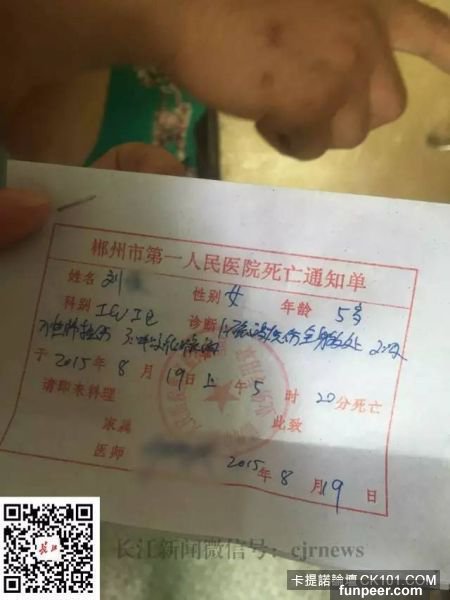 郴州市第一人民医院死亡通知单
姓名 刘 性别 女 年龄 5岁
科别 ICU 诊断 1.
于 2015年 8 月 19日 上午 5 时 20分死亡
请即来料理 此致
家属
医师
2015年 8 月 19 日
长江
长江新闻微信号：cjrnews
卡提諾論壇CK101.COM
funpeer.com